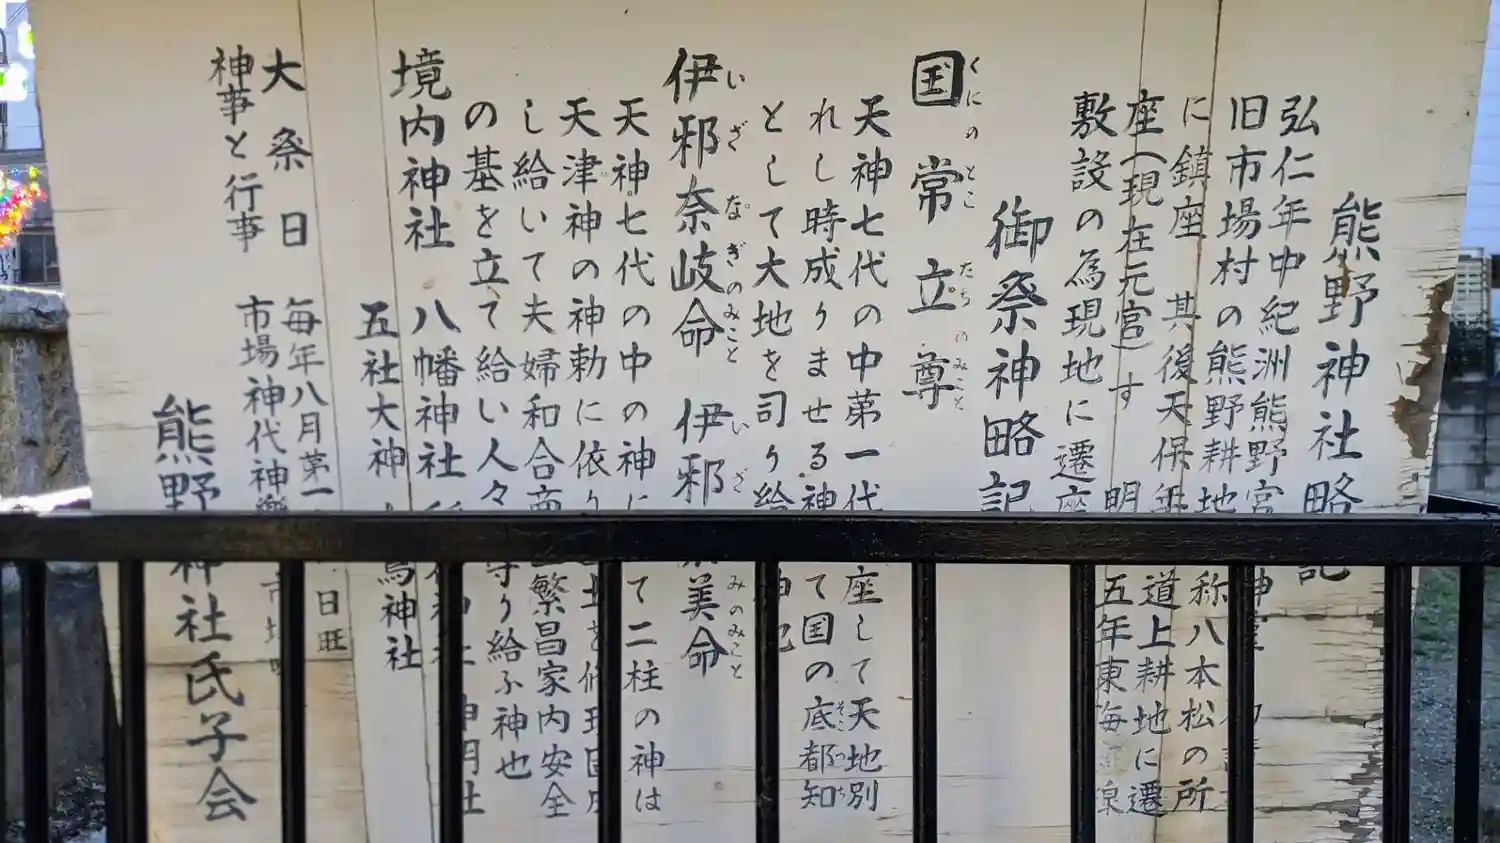 熊野神社略記
弘仁年中紀洲熊野宮神
旧市場村の熊野耕地
に鎮座 其後天保 称八本松の所
座(現在元宮)す 道上耕地に遷
敷設の為現地に遷座 明 五年東海
御祭神略記
国常立尊
くにのとこたちのみこと
天神七代の中第一代 座して天地別
れし時成りませる神 て国の底都知
そこつち
として大地を司り給 神也
伊邪奈岐命 伊邪 美命
いざなぎのみこと いざ みのみこと
天神七代の中の神に て二柱の神は
天津神の神勅に依り 土を修理国
し給いて夫婦和合商 繁昌家内安全
の基を立て給い人々 守り給ふ神也
境内神社 八幡神社 神明社
五社大神 神社
大祭日 毎年八月第一 日旺
神事と行事 市場神代神楽 市場
熊野神社氏子会